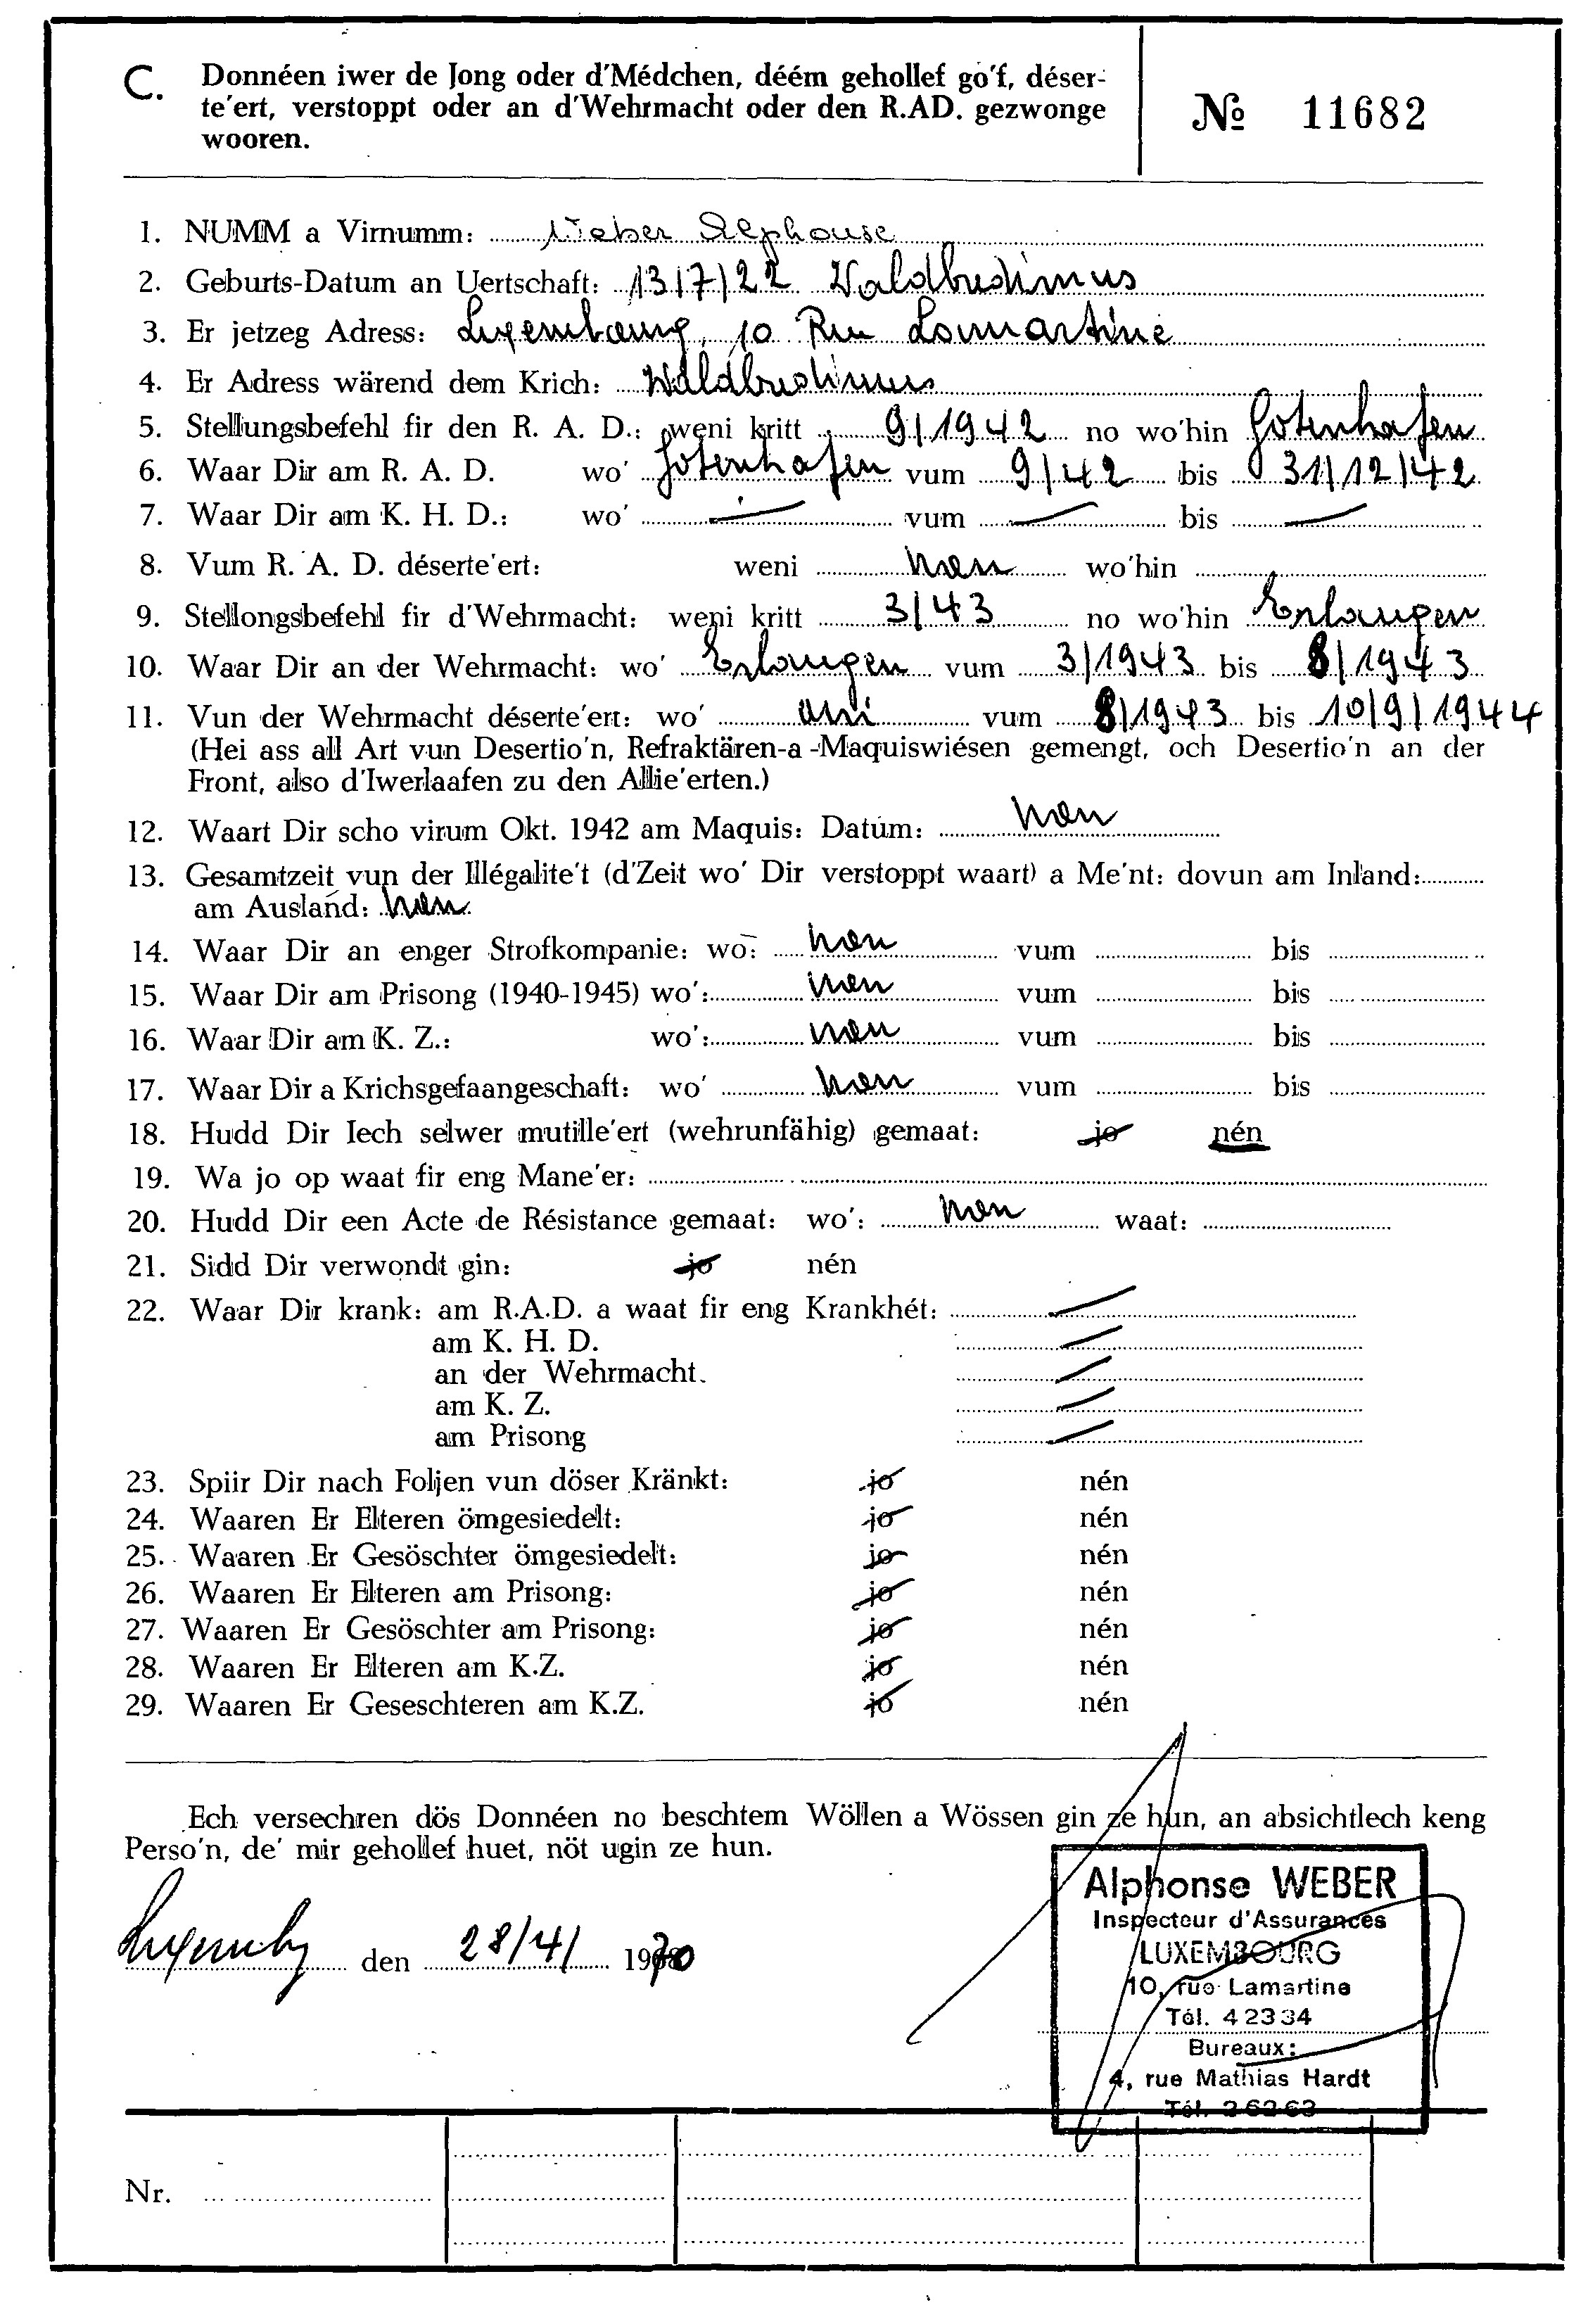 C. Donnéen iwer de Jong oder d'Médchen, déém gehollef go'f, déser-
te'ert, verstoppt oder an d'Wehrmacht oder den R.AD. gezwonge
wooren.
№ 11682
1. NUMM a Virnumm: Weber Alphonse
2. Geburts-Datum an Uertschaft: 13/7/22 Waldbredimus
3. Er jetzeg Adress: Luxembourg, 10 Rue Lamartine
4. Er Adress wärend dem Krich: Waldbredimus
5. Stellungsbefehl fir den R. A. D.: weni kritt 9/1942 no wo'hin Gotenhafen
6. Waar Dir am R. A. D. wo' Gotenhafen vum 9/42 bis 31/12/42
7. Waar Dir am K. H. D.: wo' — vum — bis —
8. Vum R. A. D. déserte'ert: weni non wo'hin
9. Stellongsbefehl fir d'Wehrmacht: weni kritt 3/43 no wo'hin Erlangen
10. Waar Dir an der Wehrmacht: wo' Erlangen vum 3/1943 bis 8/1943
11. Vun der Wehrmacht déserte'ert: wo' oui vum 8/1943 bis 10/9/1944
(Hei ass all Art vun Desertio'n, Refraktären-a-Maquiswiésen gemengt, och Desertio'n an der
Front, also d'Iwerlaafen zu den Allie'erten.)
12. Waart Dir scho virum Okt. 1942 am Maquis: Datum: non
13. Gesamtzeit vun der Illégalite't (d'Zeit wo' Dir verstoppt waart) a Me'nt: dovun am Inland:
am Ausland: non
14. Waar Dir an enger Strofkompanie: wo: non vum bis
15. Waar Dir am Prisong (1940-1945) wo': non vum bis
16. Waar Dir am K. Z.: wo': non vum bis
17. Waar Dir a Krichsgefaangeschaft: wo' non vum bis
18. Hudd Dir Iech selwer mutille'ert (wehrunfähig) gemaat: jo nén
19. Wa jo op waat fir eng Mane'er:
20. Hudd Dir een Acte de Résistance gemaat: wo': non waat:
21. Sidd Dir verwondt gin: jo nén
22. Waar Dir krank: am R.A.D. a waat fir eng Krankhét: —
am K. H. D. —
an der Wehrmacht. —
am K. Z. —
am Prisong —
23. Spiir Dir nach Foljen vun döser Kränkt: jo nén
24. Waaren Er Elteren ömgesiedelt: jo nén
25. Waaren Er Gesöschter ömgesiedelt: jo nén
26. Waaren Er Elteren am Prisong: jo nén
27. Waaren Er Gesöschter am Prisong: jo nén
28. Waaren Er Elteren am K.Z. jo nén
29. Waaren Er Geseschteren am K.Z. jo nén
Ech versechren dös Donnéen no beschtem Wöllen a Wössen gin ze hun, an absichtlech keng
Perso'n, de' mir gehollef huet, nöt ugin ze hun.
Alphonse WEBER
Inspecteur d'Assurances
LUXEMBOURG
10, rue Lamartine
Tél. 4 23 34
Bureaux:
4, rue Mathias Hardt
Tél. 2 62 63
Luxembg den 28/4/ 1970
Nr.